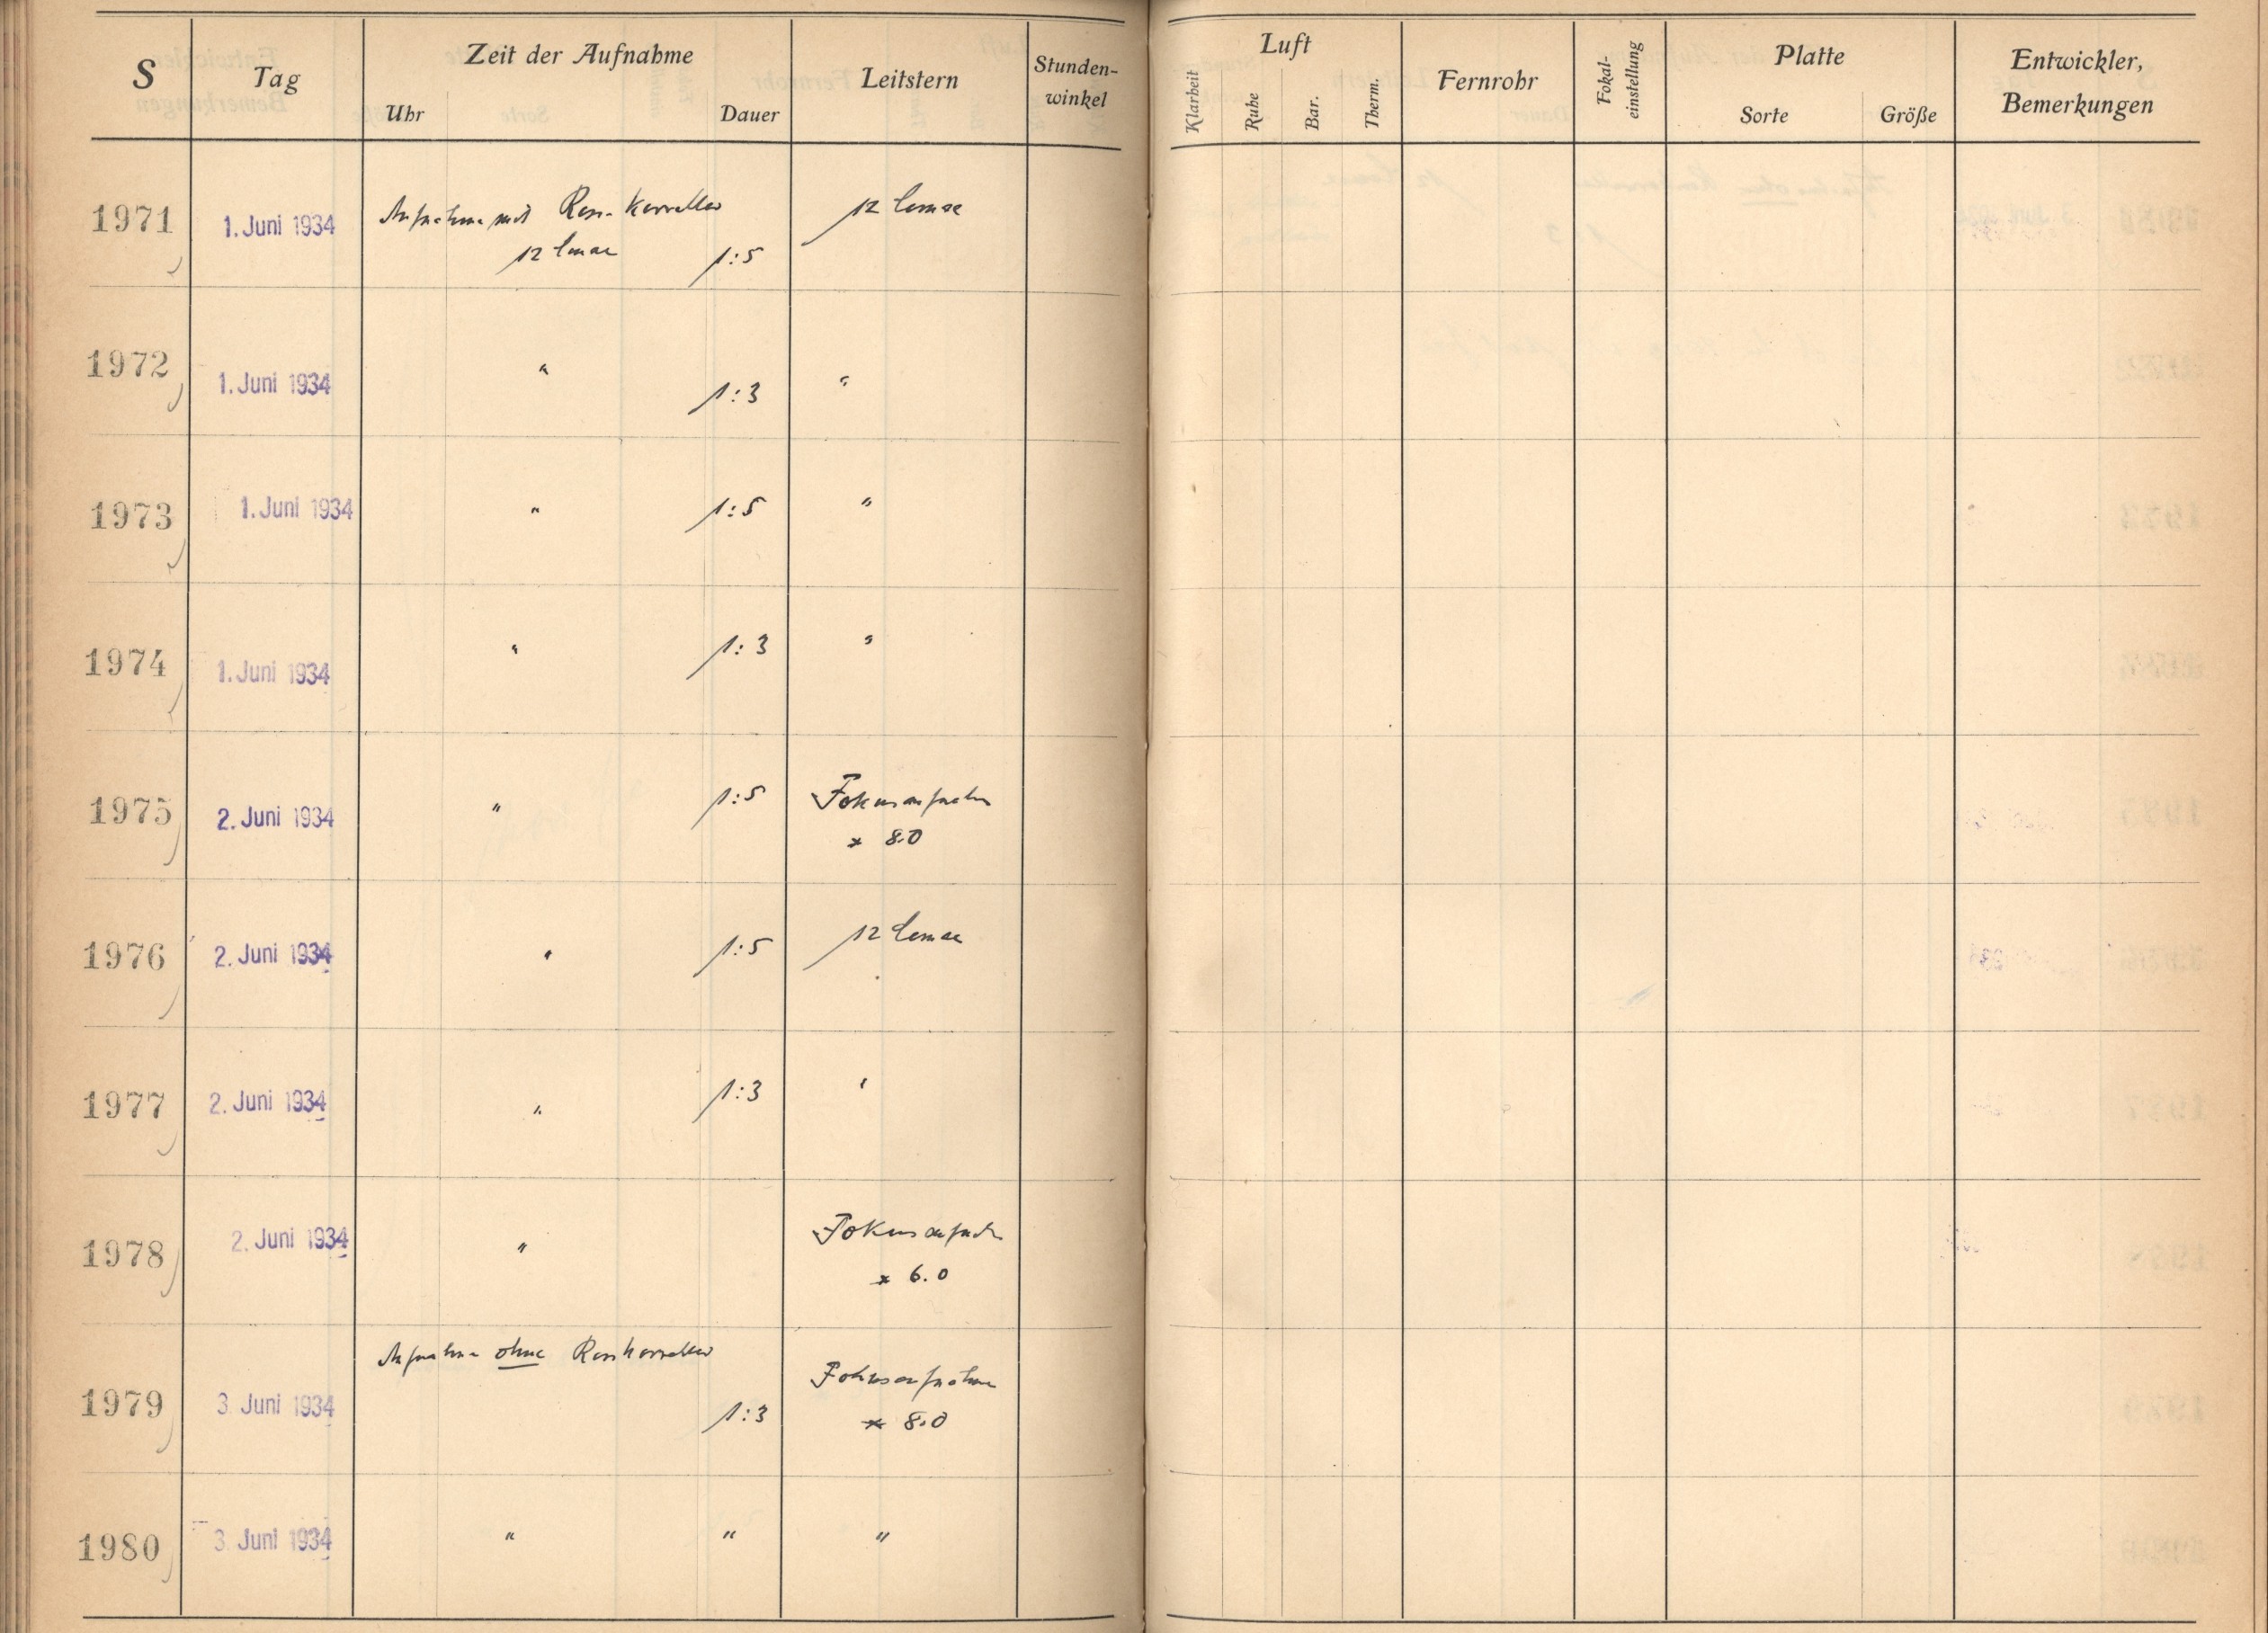 S Tag Zeit der Aufnahme Leitstern Stunden-winkel Luft Fernrohr Fokal-einstellung Platte Entwickler, Bemerkungen
Uhr Dauer Klarheit Ruhe Bar. Therm. Sorte Größe
1971 1. Juni 1934 Aufnahme mit Ross-Korrektor 12 Comae
12 Comae 1:5
1972 1. Juni 1934 " 1:3 "
1973 1. Juni 1934 " 1:5 "
1974 1. Juni 1934 " 1:3 "
1975 2. Juni 1934 " 1:5 Fokusaufnahme
* 8.0
1976 2. Juni 1934 " 1:5 12 Comae
1977 2. Juni 1934 " 1:3 "
1978 2. Juni 1934 " Fokusaufnahme
* 6.0
Aufnahme ohne Rosskorrektor
1979 3. Juni 1934 1:3 Fokusaufnahme
* 8.0
1980 3. Juni 1934 " " "